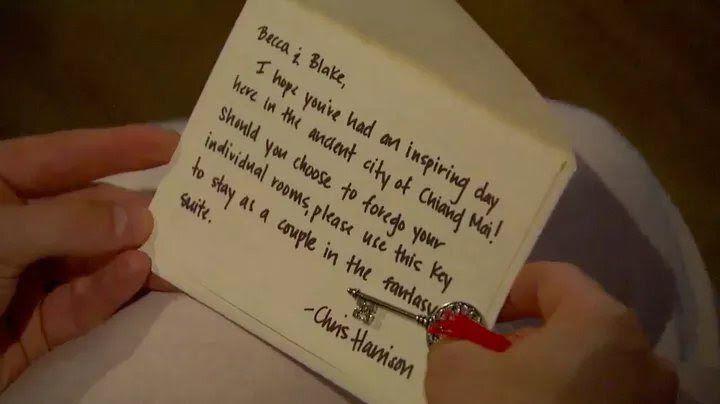 Becca & Blake,
I hope you've had an inspiring day
here in the ancient city of Chiang Mai!
Should you choose to forego your
individual rooms, please use this key
to stay as a couple in the fantasy
suite.
-Chris Harrison